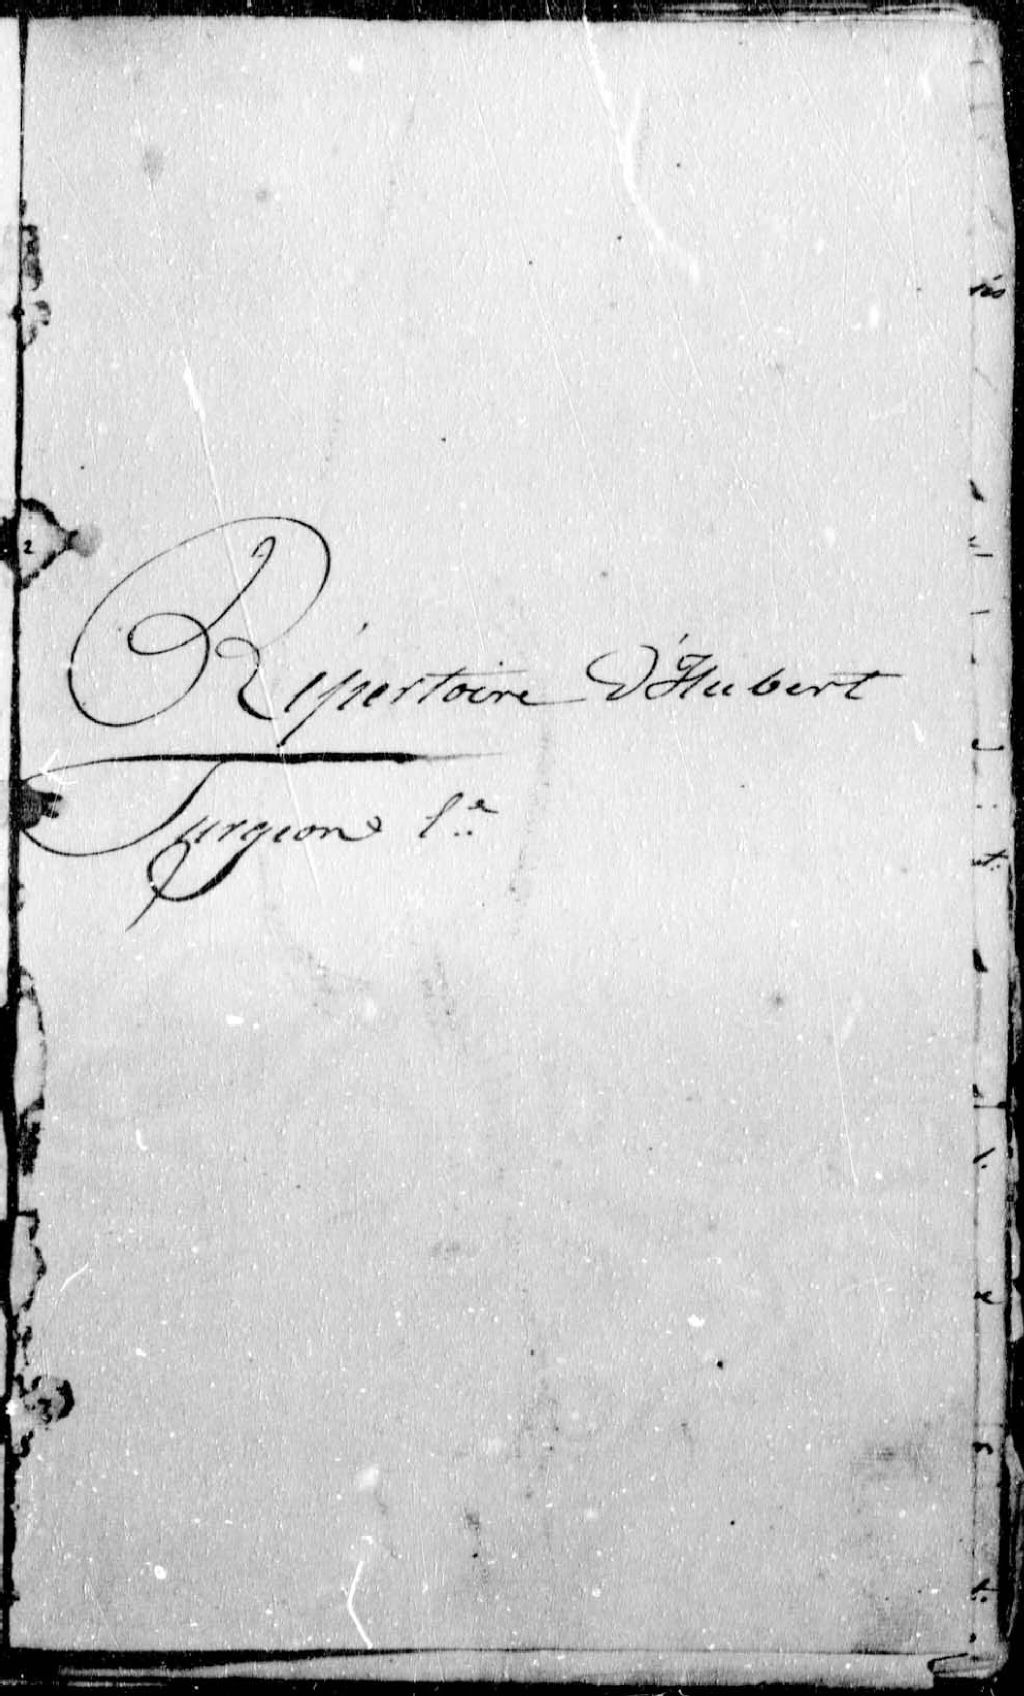 Répertoire D'Hubert
Turgeon